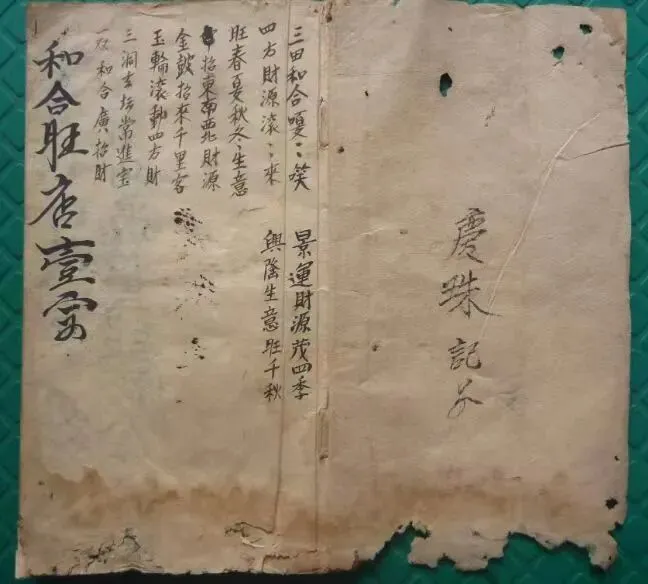 慶珠記
三田和合嗄〻笑
景運財源茂四季
四方財源滚〻來
興隆生意旺千秋
旺春夏秋冬生意
招東南西北財源
金鼓招來千里客
玉輪滚動四方財
三洞玄坛常進宝
和合廣招財
和合旺店壹宗